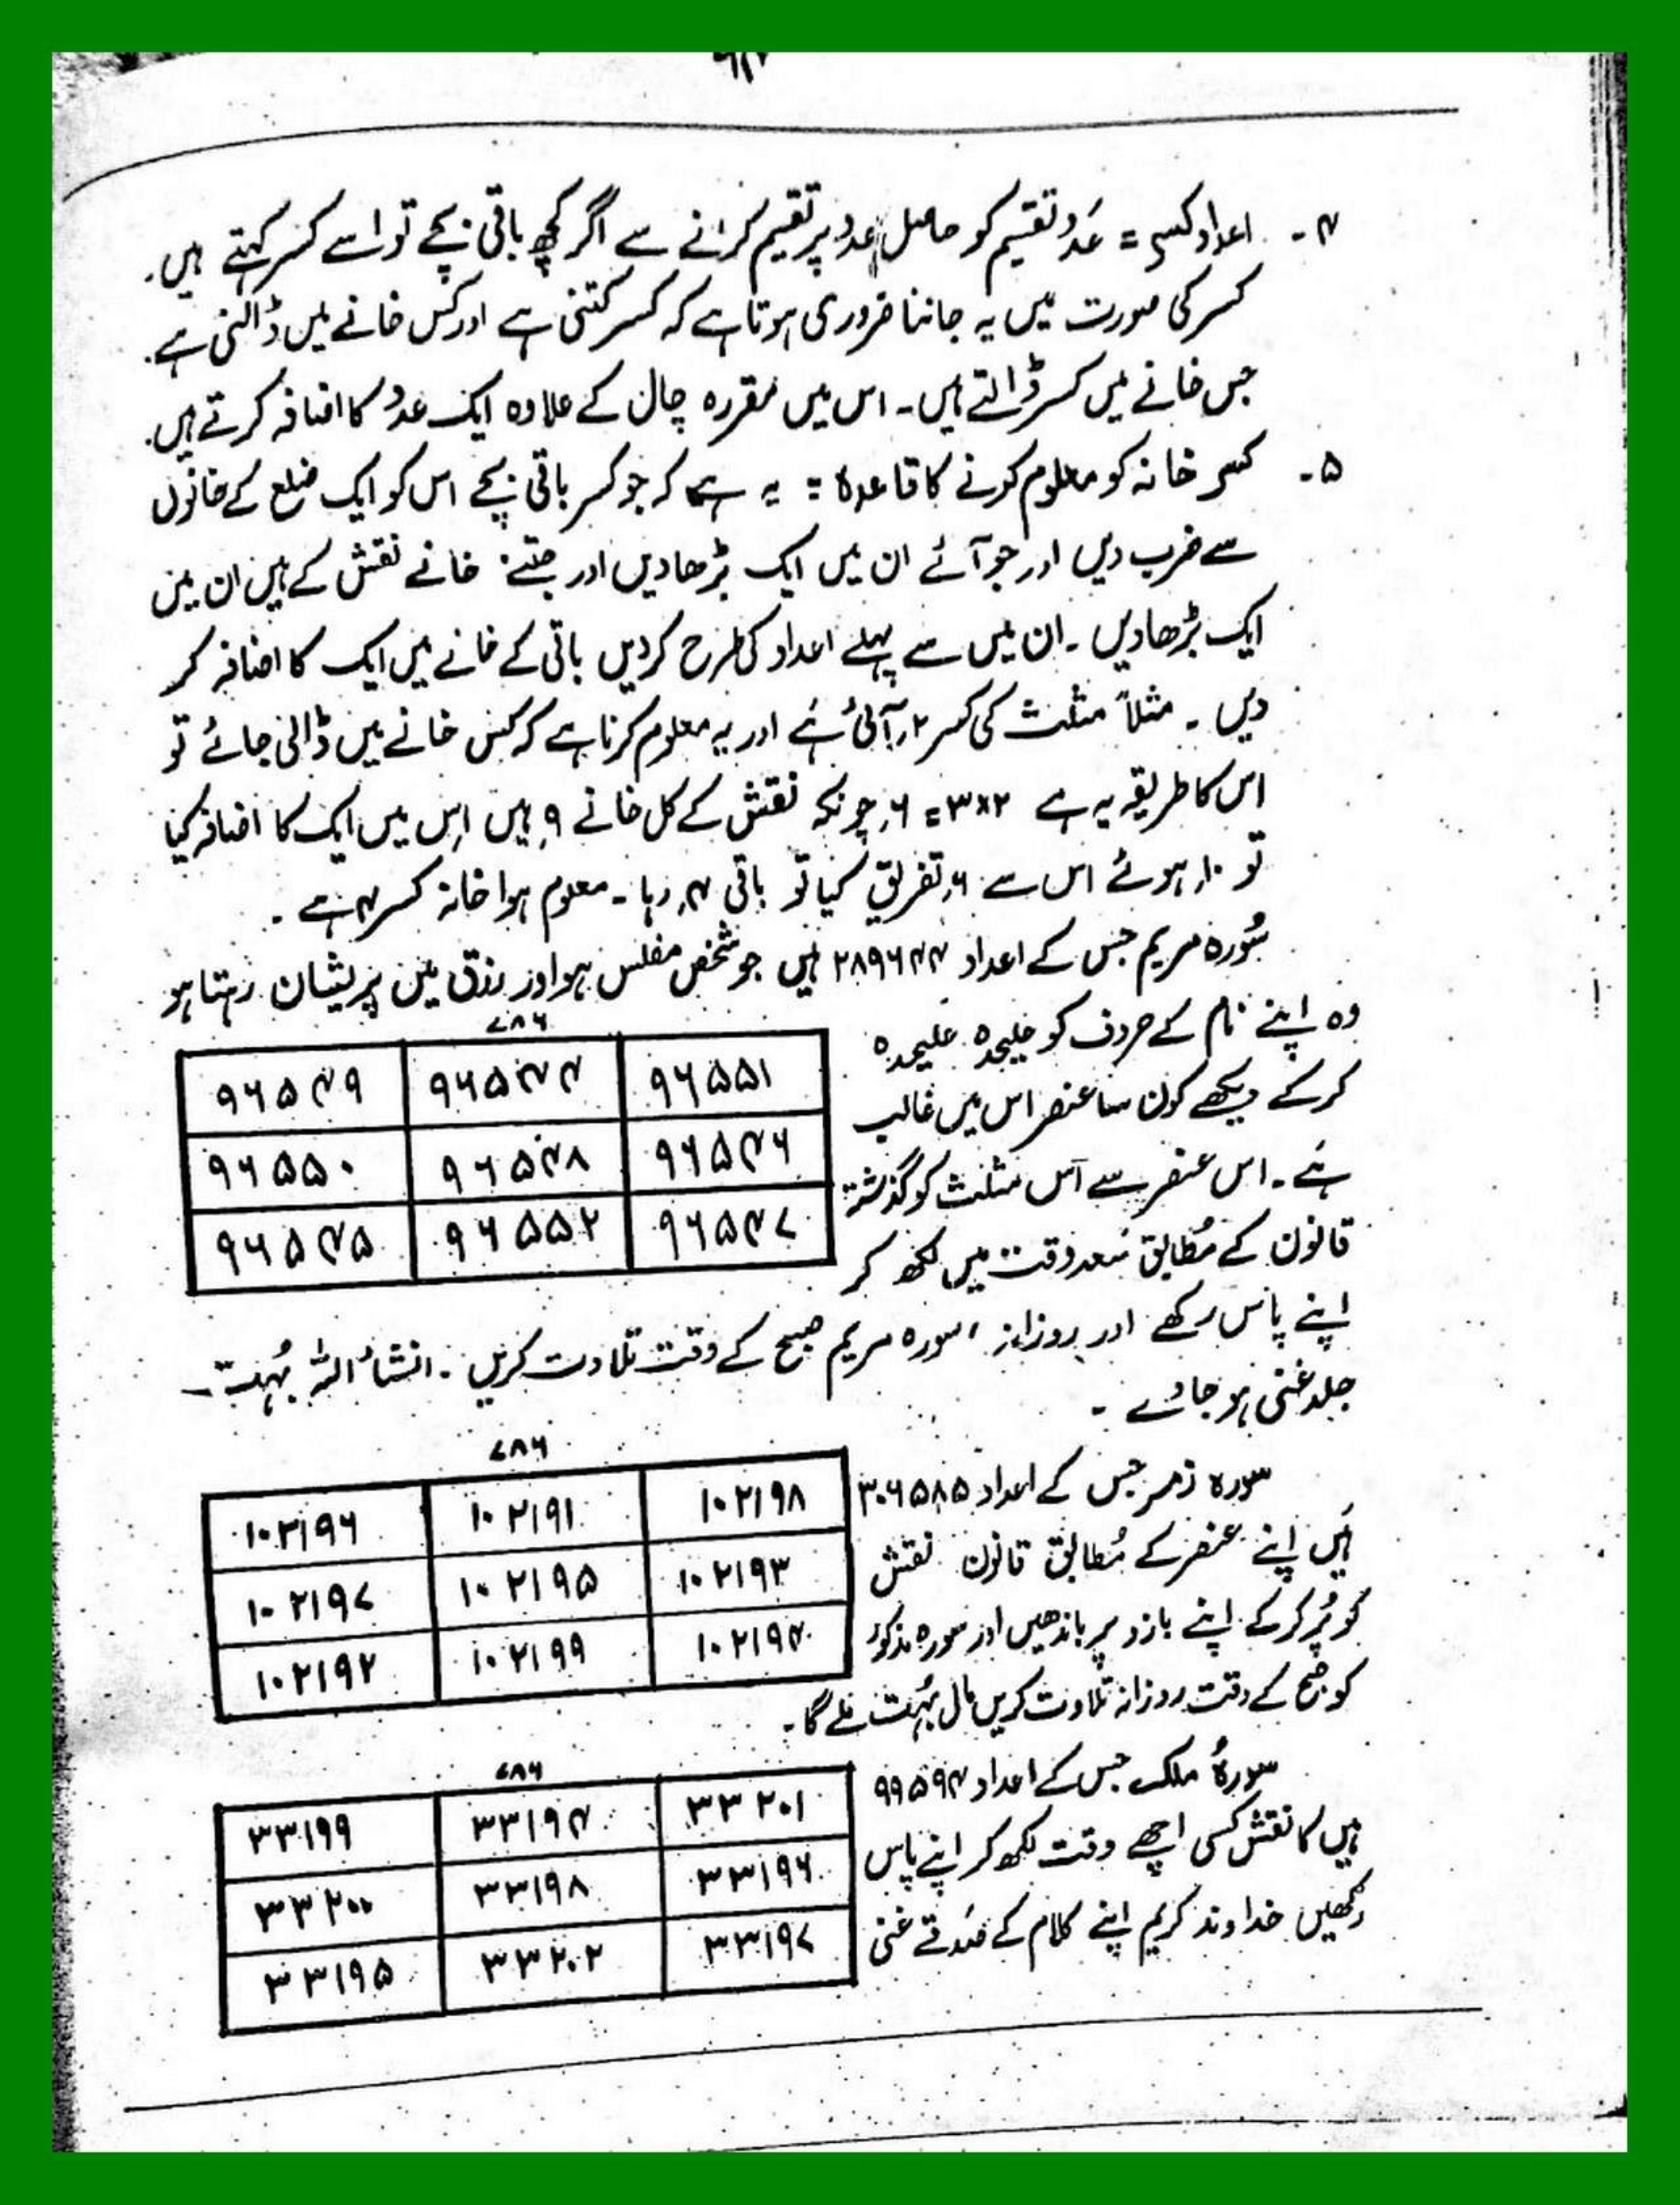 ۴۔ اعداد کسر = عدد تقسیم کو حاصل عدد پر تقسیم کرانے سے اگر کچھ باقی بچے تو اسے کسر کہتے ہیں۔
کسر کی صورت میں یہ جاننا ضروری ہوتا ہے کہ کسر کتنی ہے اور کس خانے میں ڈالنی ہے۔
جس خانے میں کسر ڈالتے ہیں۔ اس میں مقررہ چال کے علاوہ ایک عدد کا اضافہ کرتے ہیں۔
۵۔ کسر خانہ کو معلوم کرنے کا قاعدہ = یہ ہے کہ جو کسر باقی بچے اس کو ایک ضلع کے خانوں
سے ضرب دیں اور جو آئے ان میں ایک بڑھا دیں اور جتنے خانے نقش کے ہیں ان میں
ایک بڑھا دیں۔ ان میں سے پہلے اعداد کی طرح کردیں باقی کے خانے میں ایک کا اضافہ کر
دیں۔ مثلاً مثلث کی کسر ۲ آئی ہے اور یہ معلوم کرنا ہے کہ کس خانے میں ڈالی جائے تو
اس کا طریقہ یہ ہے ۲×۳ = ۶ چونکہ نقش کے کل خانے ۹ ہیں اس میں ایک کا اضافہ کیا
تو ۱۰ ہوئے اس سے ۶ تفریق کیا تو باقی ۴ رہا۔ معلوم ہوا خانہ کسر ۴ ہے۔
سُورہ مریم جس کے اعداد ۲۸۹۶۴۴ ہیں جو شخص مفلس ہو اور رزق میں پریشان رہتا ہو
وہ اپنے نام کے حروف کو علیحدہ علیحدہ
کرکے دیکھے کون سا عنصر اس میں غالب
ہے۔ اس عنصر سے اس مثلث کو گذشتہ
قانون کے مُطابق سعد وقت میں لکھ کر
اپنے پاس رکھے اور روزانہ سورہ مریم صبح کے وقت تلاوت کریں۔ انشاء اللہ بُہت
جلد غنی ہو جائے۔
۷۸۶
۹۶۵۴۹ ۹۶۵۴۴ ۹۶۵۵۱
۹۶۵۵۰ ۹۶۵۴۸ ۹۶۵۴۶
۹۶۵۴۵ ۹۶۵۵۲ ۹۶۵۴۷
سورہ زمر جس کے اعداد ۳۰۶۵۸۵
ہیں اپنے عنصر کے مُطابق قانون نقش
کو پُر کرکے اپنے بازو پر باندھیں اور سورہ مذکور
کو صبح کے وقت روزانہ تلاوت کریں مال بُہت ملے گا۔
۷۸۶
۱۰۲۱۹۶ ۱۰۲۱۹۱ ۱۰۲۱۹۸
۱۰۲۱۹۷ ۱۰۲۱۹۵ ۱۰۲۱۹۳
۱۰۲۱۹۲ ۱۰۲۱۹۹ ۱۰۲۱۹۴
سورۂ ملک جس کے اعداد ۹۹۵۹۴
ہیں کا نقش کسی اچھے وقت لکھ کر اپنے پاس
رکھیں خداوند کریم اپنے کلام کے صَدقے غنی
۷۸۶
۳۳۱۹۹ ۳۳۱۹۴ ۳۳۲۰۱
۳۳۲۰۰ ۳۳۱۹۸ ۳۳۱۹۶
۳۳۱۹۵ ۳۳۲۰۲ ۳۳۱۹۷